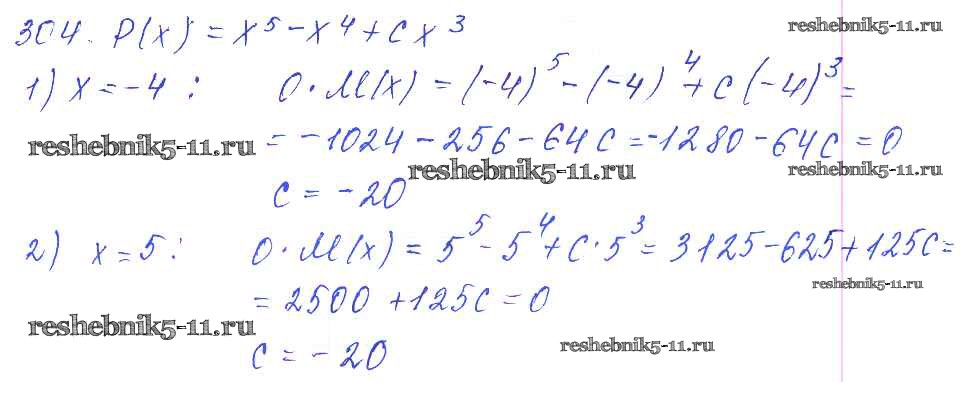 304. P(x) = x⁵ - x⁴ + cx³
reshebnik5-11.ru
1) x = -4 : 0·M(x) = (-4)⁵ - (-4)⁴ + c(-4)³ =
= -1024 - 256 - 64c = -1280 - 64c = 0
reshebnik5-11.ru
reshebnik5-11.ru
reshebnik5-11.ru
c = -20
2) x = 5 : 0·M(x) = 5⁵ - 5⁴ + c·5³ = 3125 - 625 + 125c =
reshebnik5-11.ru
= 2500 + 125c = 0
reshebnik5-11.ru
reshebnik5-11.ru
c = -20